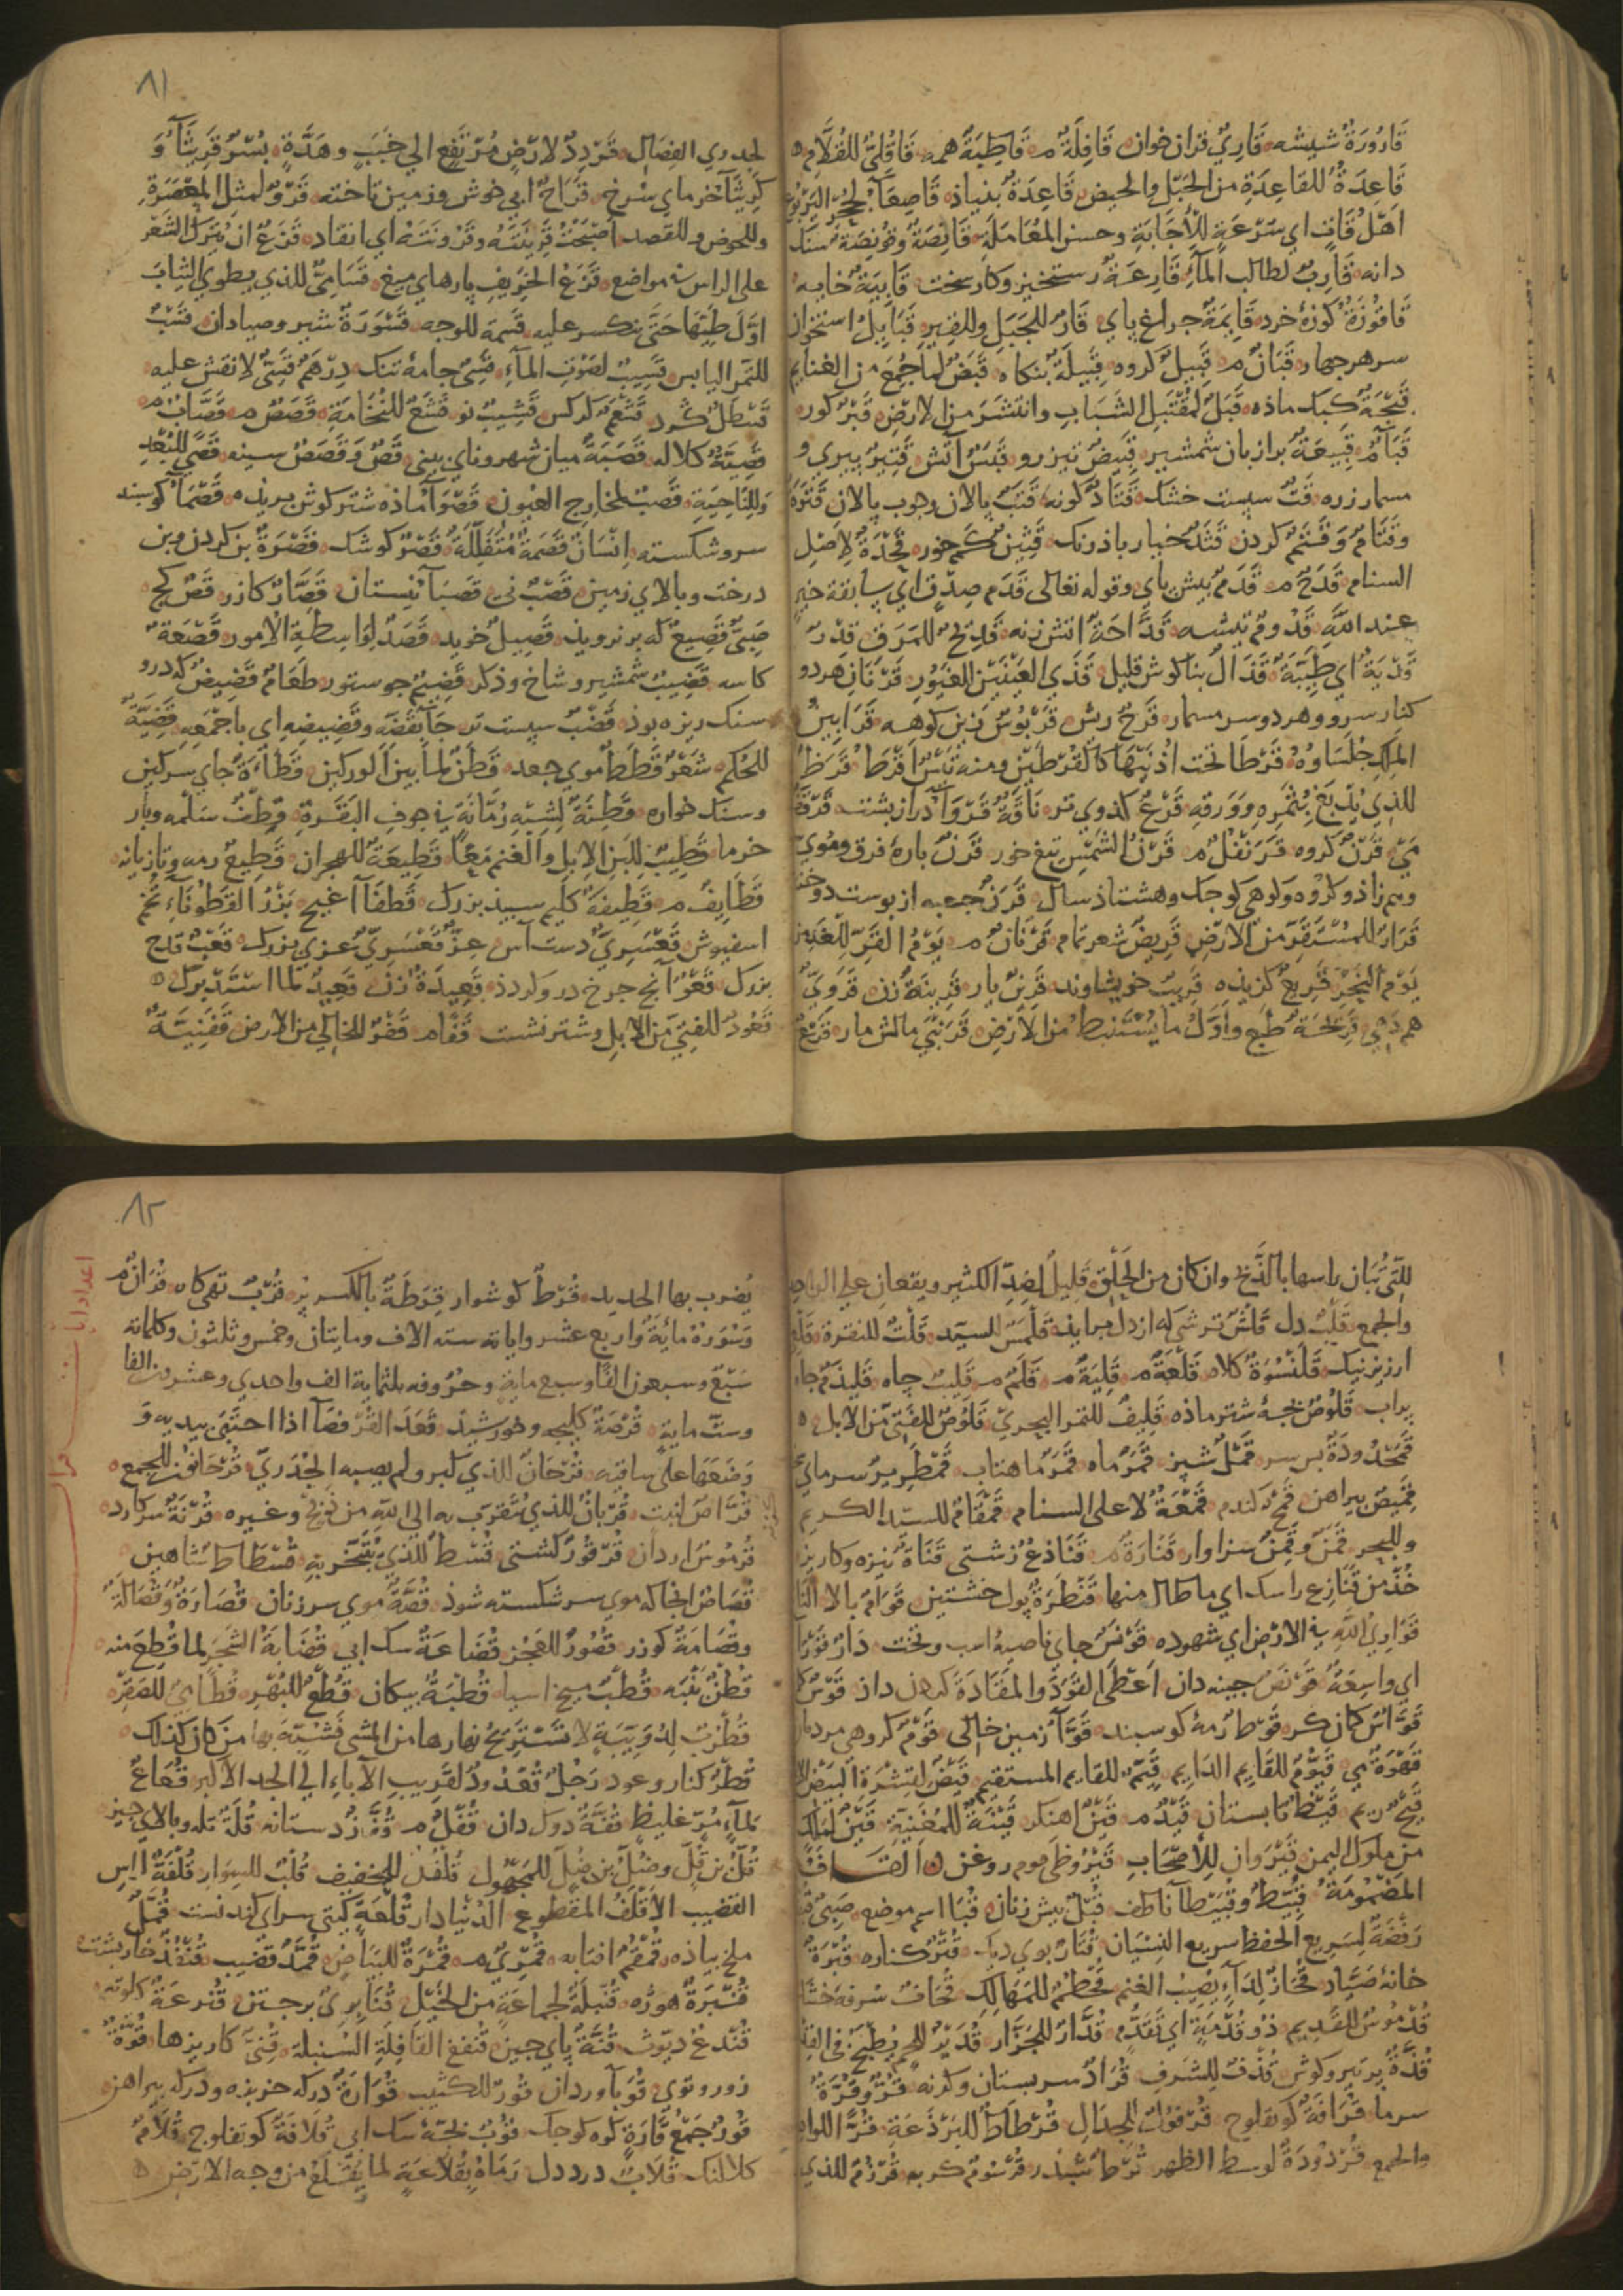 قَارُورَةٌ شیشه قَارِيٌ قران خوان قَافِلَةٌ م قَاطِبَةً همه قَاقُلّيٌ للقُلَّامِ
قَاعِدَةٌ للقاعِدَةِ من الحَبَلِ والحیض قَاعِدَةٌ بنیاذ قَاصِعَآءُ لجُحْرِ الیَرْبُوعِ
اهْلُ قَافٍ اي سُرْعَةٍ للأِجَابَةِ وحسن المُعَامَلَةِ قَانِصَةٌ سنك
دانه قَارِبٌ لطالب المَآءِ قَارِعَةٌ رستخیز وکار سخت قَابِیَةٌ خابیه
قَاقُوزَةٌ کوزهٔ خرد قَایِمَةٌ جراغ پاي قَارٌ للجَبَلِ وللقِیرِ قَبَایِلُ استخوان
سر هر جهار قَبَّانٌ م قَبِیلٌ کروه قَبِیلَةٌ بنکاه قَبَضٌ لماجُمِعَ من الغنایم
قَبَجَةٌ کبك ماذه قَبَلٌ لمُقْتَبَلِ الشَبَابِ وانتشَرَ من الارْضِ قَبْرٌ کور
قَبَآءٌ م قَبِیعَةٌ برازبان شمشیر قَبِیضٌ تیزرو قَبَسٌ آتش قَتِیرٌ پیري و
مسمار زره قَتٌّ سپست خشك قَتَادٌ کونه قَتَبٌ پالان وجوب پالان قَتَرَةٌ
وقَتَامٌ وَقَشَمٌ کردن قَثَدٌ خیار باذرنك قَتِینٌ کم خور قَحْدَةٌ لاَصْلِ
السنام قَدَحٌ م قَدَمٌ بیش پاي وقوله تعالی قَدَمَ صِدْقٍ اي سابقة خیرٍ
عند اللّهِ قَدُومٌ تیشه قَدَّاحَةٌ اتش زنه قَدِیحٌ للمَرَقِ قِدْرٌ
قَدِیَةٌ اي طَیِّبَةٌ قَذَالٌ بناکوش قلیل قَذَي العَیْنَیْنِ الغَیُورِ قَرْنَانِ هر دو
کنار سرو وهر دو سر مسمار قَرْحٌ ریش قَرَبُوسٌ زین کوهه قَرَابِینُ
المَلِكِ جُلَسَاوُهُ قَرْطَا تحت اذُنَیْهَا کالقُرْطَیْنِ ومنه تَیْسٌ اقْرَطُ قَرَظٌ
للذي یُدْبَغُ بِثَمَرِهِ وَوَرَقِهِ قَرْعٌ کدوي تر نَاقَةٌ قَرْوَآءُ دراز بشت قَرْقَفٌ
مي قَرْنٌ کروه قَرَنْفُلٌ م قَرْنُ الشَّمْسِ تیغ خور قَرْنٌ بارهٔ فرق وموي
وهم زاذ وکروه وکوهی کوجك وهشتاذ سال قَرَنٌ جعبه از پوست دوخته
قَرَارٌ للمُسْتَقَرِّ من الارْضِ قَرِیضٌ شعر تمام قَرْنَانٌ م یَوْمُ القَرِّ للغَدِ مِن
یَوْمِ النَّحْرِ قَرِیعٌ کزیده قَرِیبٌ خویشاوند قَرِینٌ یار قَرِینَةٌ زن قَرَوِيٌّ
هم دهي قَرِیحَةٌ طبع واَوّلُ ما یُسْتَنبَطُ من الاَرْضِ قَرَنْبَي مالش مار قَرَعٌ
۸۱
لجدري الفِصَالِ قَرْدَدٌ لارْضٍ مُرْتَفِعٍ الي جَنْبِ وهَدَةٍ بُسْرٌ قَرِیثَآءُ وَ
کَرِیثَآءُ خرماي سرخ قَرَاحٌ ابي خوش وزمین تاخته قَرْوٌ لمثل المِعْصَرَةِ
وللحوض وللقصد اَصْبَحَتْ قَرِینَتُهُ وقَرُونَتُهُ اي انقاد قَزَعٌ ان یُتْرَكَ الشَعْرُ
علي الراس في مواضع قَزَعُ الخَرِیفِ پارهاي میغ قَسَامِيٌّ للذي یطوي الثیابَ
اوّلَ طَیِّهَا حَتَّی تنکسر علیه قَسِمَةٌ للوجه قَسْوَرَةٌ شیر وصیادان قَسْبٌ
للتمر الیابس قَسِیبٌ لصَوْتِ المَآءِ قَسِيٌّ جامهٔ تنك دِرْهَمٌ قَسِيٌّ لا نقش علیه
قَسْطَلٌ کرد قَشْعَمٌ کرکس قَشِیبٌ نو قَشْعٌ للنُخَامَةِ قَصَصٌ م قَصَّابٌ م
قَصِبَةٌ کلاله قَصَبَةٌ میان شهر وناي بیني قَصٌّ وَقَصَصٌ سینه قَصًي للبُعْدِ
وَلِلنَّاحِیَةِ قَصَبٌ لمخارج العیون قَصْوَآءُ ماذه شتر کوش بریذه قَصْمَآءُ کوسبند
سرو شکسته اِنْسَانٌ قَصَمَةٌ مُتَفَلِّلَةٌ قَصْرٌ کوشك قَصَرَةٌ بن کردن وبن
درخت وبالاي زمین قَصَبٌ ني قَصَبَآءُ نیستان قَصَّارٌ کازر قَصٌّ کج
صَبِيٌّ قَصِیعٌ که برنرویذ قَصِیلٌ خوید قَصَدٌ لِوَاسِطَةِ الاُمورِ قَصْعَةٌ
کاسه قَضِیبٌ شمشیر وشاخ وذکر قَضِیمٌ جو ستور طَعَامٌ قَضِیضٌ که درو
سنك ریزه بوذ قَضْبٌ سپست تر جَآءَ بقَضِّهِ وقَضِیضِهِ اي باجْمَعِهِ قَضِیَّةٌ
للحُکْمِ شَعْرٌ قَطَطٌ موي جعد قَطَنٌ لما بین الورکین
وسنك خواره قَطِنَةٌ لِشِبْهِ رُمَّانَةٍ في جوفِ البَقَرَةِ قَطَفٌ سَلْمه وبار
خرما قَطِیبٌ لِلَبَنِ الاِبِلِ والغنمِ مَعًا قَطِیعَةٌ للهِجرانِ قَطِیعٌ رمه وتازیانه
قَطَایِفُ م قَطِیفَةٌ کلیم سپیذ بزرك قَطفَآءُ اغیج بَزْرُ القَطُونَآءِ تخم
اسفیوش قَعْسَرِيٌّ دست آس عِزٌّ قَعْسَرِيٌّ عزي بزرك قَعْبٌ قدح
بزرك قَعْوٌ انج جرخ درو کردذ قَعِیدَةٌ زن قَعِیدٌ لما اسْتَدْبَرَكَ
قَعُودٌ للفَتِيِّ مِنَ الاِبِلِ وشتر نشست قَفًا م قَفْرٌ للخالي من الارض قَفِینَةٌ
للّتي تُبَان راسها بالذَّبْحِ وان کان من الحَلْقِ قَلِیلٌ لضِدّ الکثیر ویقعان علي الواحد
والجمع قَلْبٌ دل قَلَسٌ ترشي که از دل برایذ قَلَمَّسٌ للسیّد قَلْتٌ للنقرة
ارزیز نیك قَلَنْسُوَةٌ کلاه قَلْعَةٌ م قَلِیَةٌ م قَلَمٌ م قَلِیبٌ جاه قَلَیْذَمٌ جاه
پراب قَلُوصٌ بجهٔ شتر ماذه قَلِیفٌ للتمر البحريّ قَلُوصٌ للفتيّ من الابل
قَمَحْدُودَةٌ پس سر قَمْلٌ شپز قَمَرٌ ماه قَمَرٌ ماهتاب قَمْطَرِیرٌ سرماي
قَمِیصٌ پیراهن قَمْحٌ کندم قَمَعَةٌ لاعلي السنام قَمْقَامٌ للسیّد الکریم
وللبحر قَمَنٌ وقَمِنٌ سزاوار قَنَارَةٌ م قَنَاذِعُ زشتي قَنَاةٌ نیزه وکاریز
خُذْ من قَنَازِعِ راسك اي ما طال منها قَنْطَرَةٌ پول خشتین قَوَامٌ بالا
قَوَارِيُ اللّهِ في الارْضِ اي شهوده قَوْنَسٌ جاي ناصیهٔ اسب وتخت دَارٌ قَوْرَآءُ
اي واسِعَةٌ قَوْنَصٌ جینه دان اَعْطَي القَوَدَ والمَقَادَةَ کردن داذ قَوْسٌ
قَوَّاسٌ کمان کر قَوْطٌ رمهٔ کوسبند قَوَآءٌ زمین خالي قَوْمٌ کروهي مردمان
قَهْوَةٌ مي قَیُّومٌ للقایم الدایم قَیِّمٌ للقایم المستقیم قَیْضٌ لقِشْرَةِ البَیْضِ
قَیْحٌ ریم قَیْظٌ تابستان قَیْدٌ م قَیْنٌ اهنکر قَیْنَةٌ للمُغَنِّیَةِ قَیْلٌ لمَلِكٍ
من ملوك الیمن قَیْرَوَانٌ للأصْحَابِ قَیْرُوطِي موم روغن القَاف
المَضْمُومَةُ قُبَّیْطٌ وقُبَیْطَآءُ ناطف قُبُلٌ پیش زنان قُبَا اسم موضع
رُفَضَةٌ لسَرِیعِ الحفظِ سریع النِسْیَانِ قُتَارٌ بوي دیك قُتْرٌ کناره قُتْرَةٌ
خانهٔ صَیَّاد قُحَازٌ لِدَآءٍ یُصِیبُ الغنم قُحَمٌ للمَهَالِكِ قُحَافٌ
قُدْمُوسٌ للقدیم ذُو قُدْمَةٍ اي تَقَدُّمٍ قُدَارٌ للجَزَّار
قُذَّةٌ پر تیر وکوش قُذَفٌ للشُرَفِ قُرَادٌ سر پستان وکنه قُرٌّ وَقُرَّةٌ
سرما قُرَافَةٌ کونفلوج قُرْطَاطٌ للبَرْذَعَةِ قُرَّآءٌ للواحد
والجمع قُرْدُودَةٌ لوسط الظهر
۸۲
یُضرب بها الحدید قُرْطٌ کوشوار قِرَطَةٌ بالکسر قُرْبٌ تهی کاه قُرْانٌ م
وَسُورَهُ مایَةٌ واربع عشر وایاته سته الاف ومایتان وخمس وثلثون وکلماته
سَبْعٌ وسبعون الفًا وسبع مایةٍ وحُرُوفه ثلثمایة الف واحدي وعشرون الفا
وستّ مایةٍ قُرْصَةٌ کلیجه وخورشید قَعَدَ القُرْفُصَآءَ اذا احتَبَي بیدیه وَ
وَضَعَهَا علی ساقیه قُرْحَانٌ للذي کبر ولم یصبه الجُدَريّ قُرْحَانُونَ للجمع
قُرَّاصٌ انبت قُرْبانٌ للذي یُتقَرّب به الی اللّه من ذبحٍ وغیره قُرْنَةٌ سر کارد
قُرْمُوسٌ اردان قُرْقُورٌ کشتي قُسْطٌ للذي یُتَبَخّر بهِ قُسْطَاطٌ شاهین
قُصَاصٌ انجا که موي سر شکسته شوذ قُصَّةٌ موي سر زنان قُصَارَةٌ وَقُصَالَةٌ
وقُصَامَةٌ کوزر قُصُورٌ للعَجْزِ قُضَاعَةٌ سك ابي قُضَابَةُ الشجَرِ لما قُطِعَ منه
قُطْنٌ پنبه قُطْبٌ میخ اسیا قُطْبَةٌ پیکان قُطْعٌ للبُهْرِ قُطَامِيٌّ للصَقْرِ
قُطْرُبٌ لِدُوَیبَّةٍ لا تَسْتَرِیحُ نهارها من المشي فَشُبِّهَ بها من کان کذلك
قُطْرٌ کنار وعود رَجُلٌ قُعْدُدٌ لقَرِیب الآباءِ الي الجدّ الاَکبرِ قُعَاعٌ
لمآءٍ مُرٍّ غلیظٍ قُفَّةٌ دوك دان قُفْلٌ م قُفَّازٌ دستانه قُلَّةٌ تله وبالاي جیز
قُلُّ بن قُلٍّ وضُلُّ بن ضُلٍّ للمجهُولِ قُلْقُلٌ للخفیف قُلْبٌ للسِوَارِ
القضیب الاَقْلَفُ المَقطُوعِ الدُنْیَا دار قُلْعَةٍ کیتي سراي کندنست قُمَّلٌ
ملخ پیاذه قُمْقُمٌ افتابه قُمْرِيٌّ م قُمْرَةٌ للبَیَاضِ قُمُدٌّ قضیب قُنْفُذٌ خارپشت
قُنْبَرَةٌ هوزه قُنْبُلَةٌ لجماعَةٍ من الخَیْلِ قُنْزُعَةٌ کلوته
قُنْدُعٌ دیوث قُنَّةٌ قُنْفُعٌ القَافِلَةِ قُنِيٌّ کاریزها قُوَّةٌ
زور وتوي قُوَبَآءُ وردان قُورٌ للکثیب قُوَارَةٌ درکه خربزه ودرکه پیراهن
قُورٌ جَمْعُ قَارَةٍ کوه کوجك قُوْبٌ قُلَافَةٌ کونفلوج قُلَامٌ
کلالنك قُلَابٌ درد دل رَمَاهُ بِقُلَاعَةٍ لما یَقْتَلِعُ من وجه الارْضِ
اعداد ایات قران